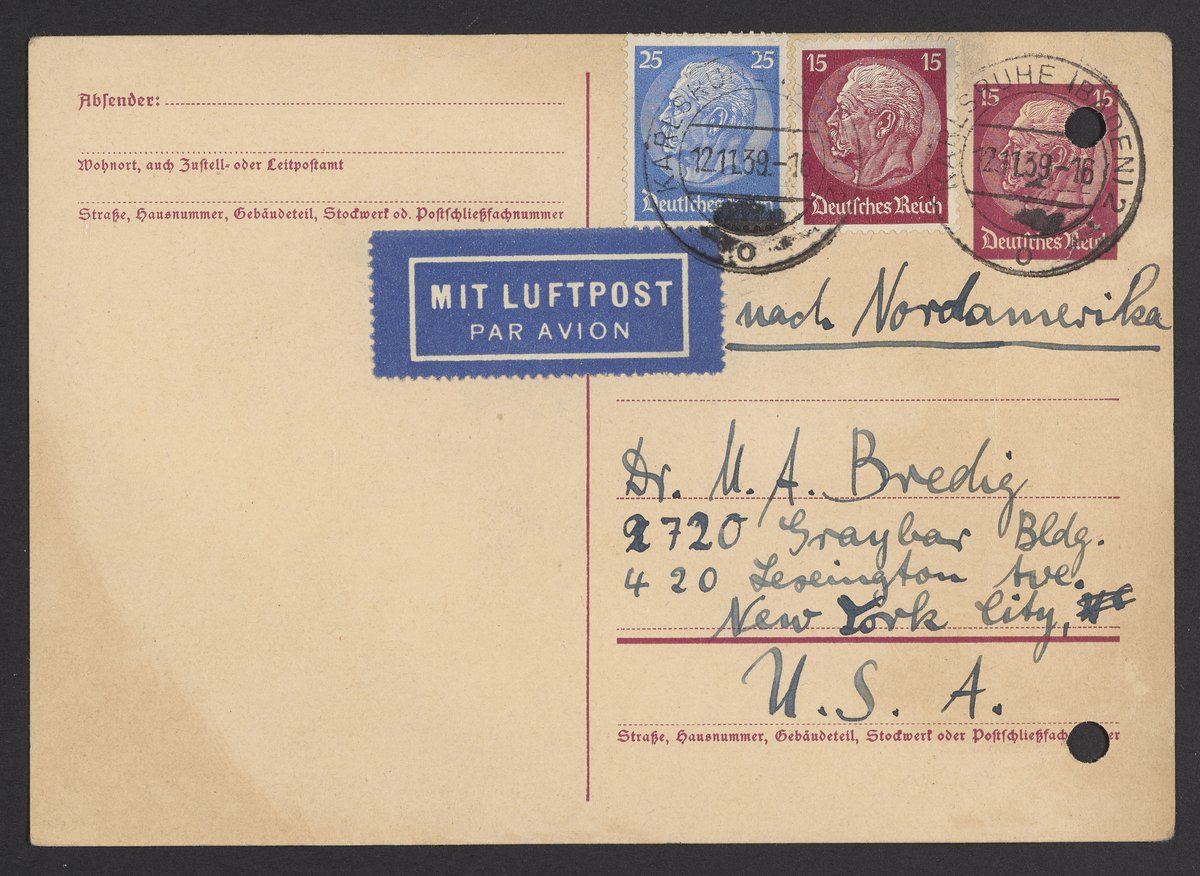 Absender:
Wohnort, auch Zustell- oder Leitpostamt
Straße, Hausnummer, Gebäudeteil, Stockwerk od. Postschließfachnummer
25 25
Deutsches Reich
15 15
Deutsches Reich
15 15
Deutsches Reich
KARLSRUHE
12.11.39.-16
KARLSRUHE (BADEN) 2
12.11.39.-16
o
o
MIT LUFTPOST
PAR AVION
nach Nordamerika
Dr. M. A. Bredig
2720 Graybar Bldg.
420 Lexington Ave.
New York City,
U. S. A.
Straße, Hausnummer, Gebäudeteil, Stockwerk oder Postschließfach er